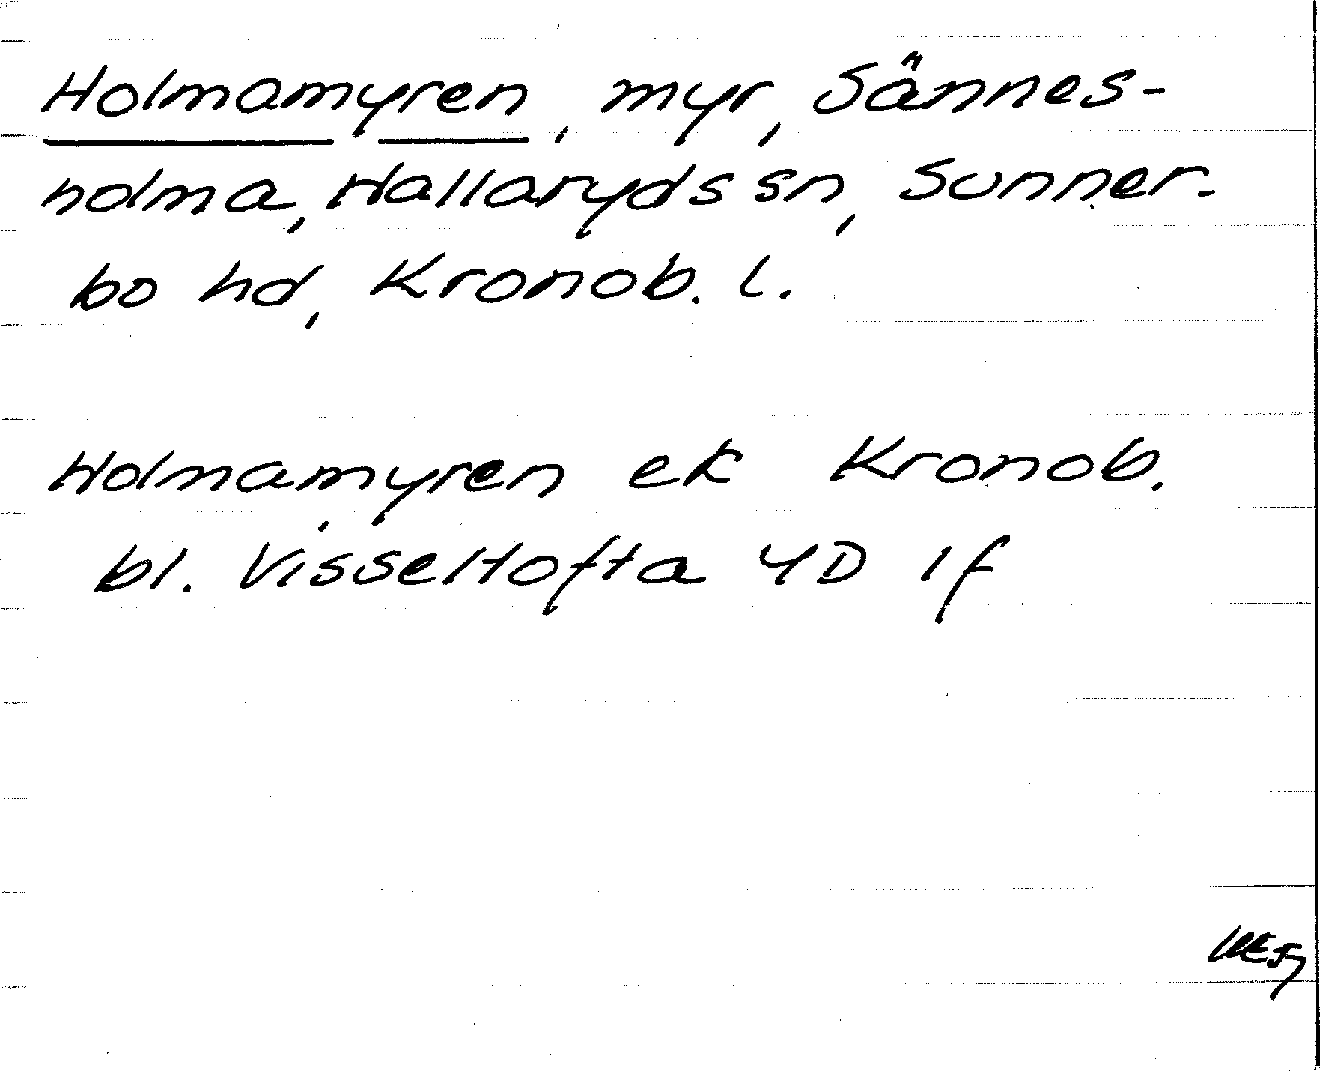 Holmamyren, myr, Sännes-
holma, Hallaryds sn, Sunner-
bo hd, Kronob. l.
Holmamyren ek Kronob.
bl. Visseltofta 4D 1f